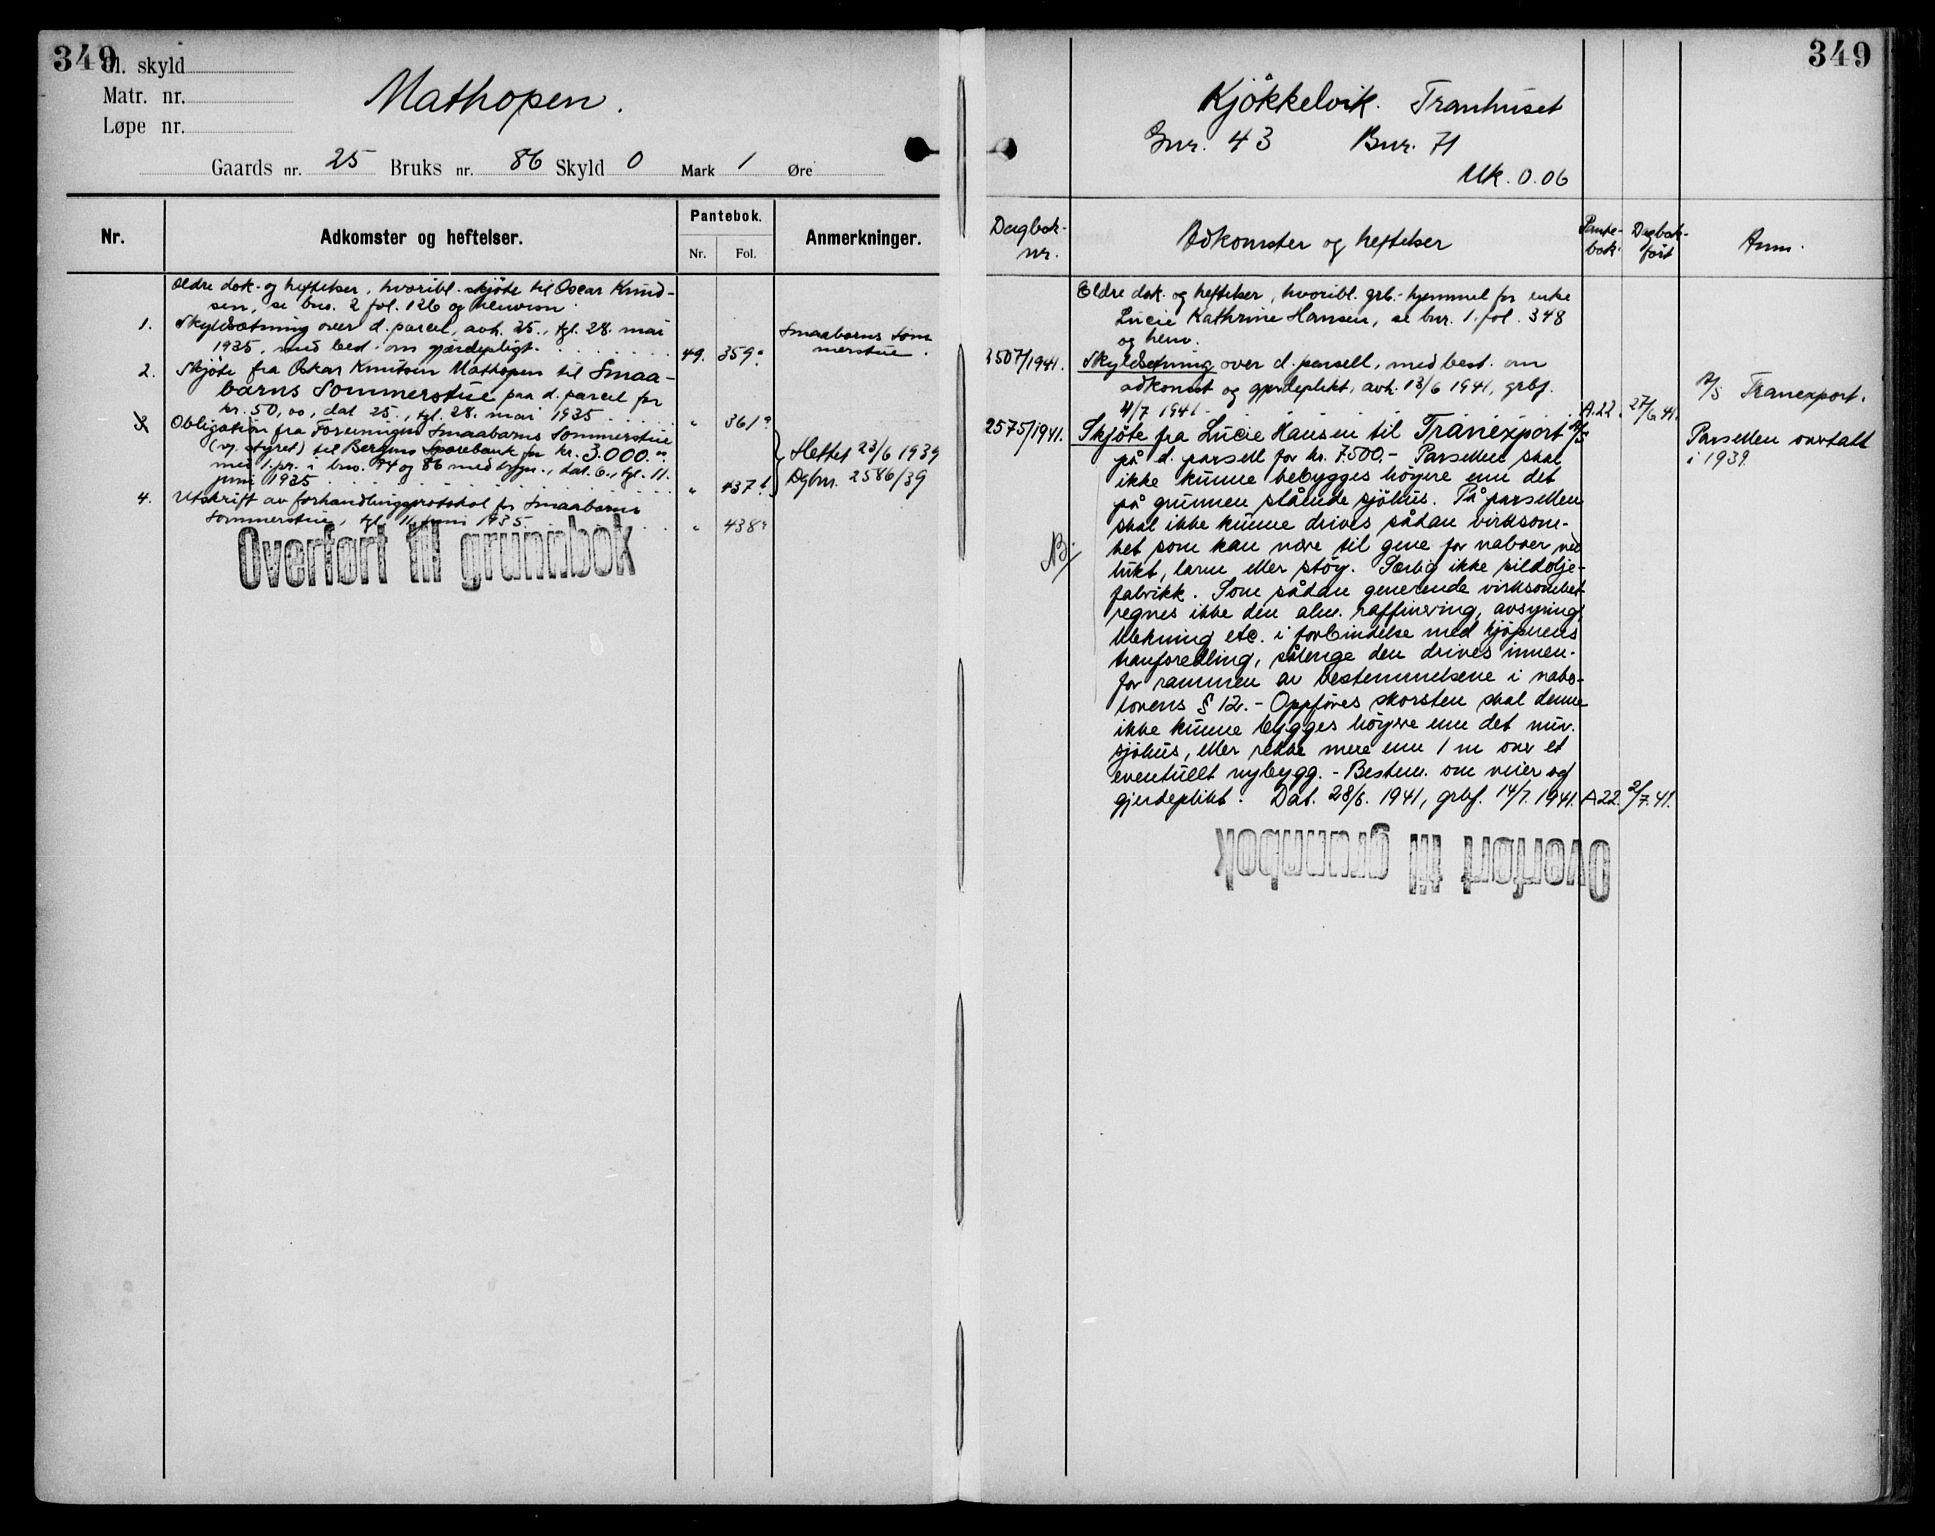 349
Gl. skyld
Matr. nr.
Løpe nr.
Mathopen.
Gaards nr. 25 Bruks nr. 86 Skyld 0 Mark 1 Øre
Nr.
Adkomster og heftelser.
Pantebok.
Nr. Fol.
Anmerkninger.
Eldre dok. og heftelser, hvoribl. skjöte til Oscar Knud-
sen, se bno. 2 fol. 126 og henvisn.
1. Skyldsætning over d. parcel, avh. 25., tgl. 28. mai
1935, med best. om gjærdepligt. 49. 359
Smaabarns Som
merstue.
2. Skjöte fra Oskar Knutsen Mathopen til Smaa-
barns Sommerstue paa d. parcel for
kr. 50,00, dat 25., tgl. 28. mai 1935 " 361
3. Obligation fra Foreningen Smaabarns Sommerstue
(v. styret) til Bergens Sparebank for kr. 3.000.
med 1. pr. i bno. 74 og 86 med bygn., dat. 6., tgl. 11.
juni 1935 " 437
Slettet 23/6 1939
Dgbnr. 2586/39
4. Utskrift av forhandlingsprotokol for Smaabarns
Sommerstue, tgl. 11. juni 1935. " 438
Overført til grunnbok
349
Kjökkelvik. Tranhuset
Gnr. 43 Bnr. 71
Mk. 0.06
Dagbok-
nr.
Adkomster og heftelser
Pante-
bok
Dagbok-
ført
Anm.
Eldre dok. og heftelser, hvoribl. grb.-hjemmel for enke
Lucie Kathrine Hansen, se bnr. 1. fol. 348
og henv.
2507/1941. Skyldsetning over d. parsell, med best. om
adkomst og gjerdeplikt, avh. 13/6 1941, grbf.
4/7 1941. A.22. 27/6.41.
A/S Tranexport.
2575/1941. Skjöte fra Lucie Hansen til Tranexport A/S
på d. parsell for kr. 7.500.- Parsellen skal
ikke kunne bebygges höyere enn det
på grunnen stående sjöhus. På parsellen
skal ikke kunne drives sådan virksom-
het som kan være til gene for naboer ved
lukt, larm eller støy. Særlig ikke sildolje-
fabrikk. Som sådan generende virksomhet
regnes ikke den alm. raffinering, avsyring,
blekning etc. i forbindelse med kjöperens
tranforedling, sålenge den drives innen-
for rammen av bestemmelsene i nabo-
lovens § 12. - Oppføres skorsten skal denne
ikke kunne bygges höyere enn det nuv.
sjöhus, eller rekke mere enn 1 m over et
eventuelt nybygg. - Bestem. om veier og
gjerdeplikt. Dat. 28/6. 1941, grbf. 14/7. 1941. A22. 2/7.41.
Parsellen overtatt
i 1939.
NB/
Overført til grunnbok